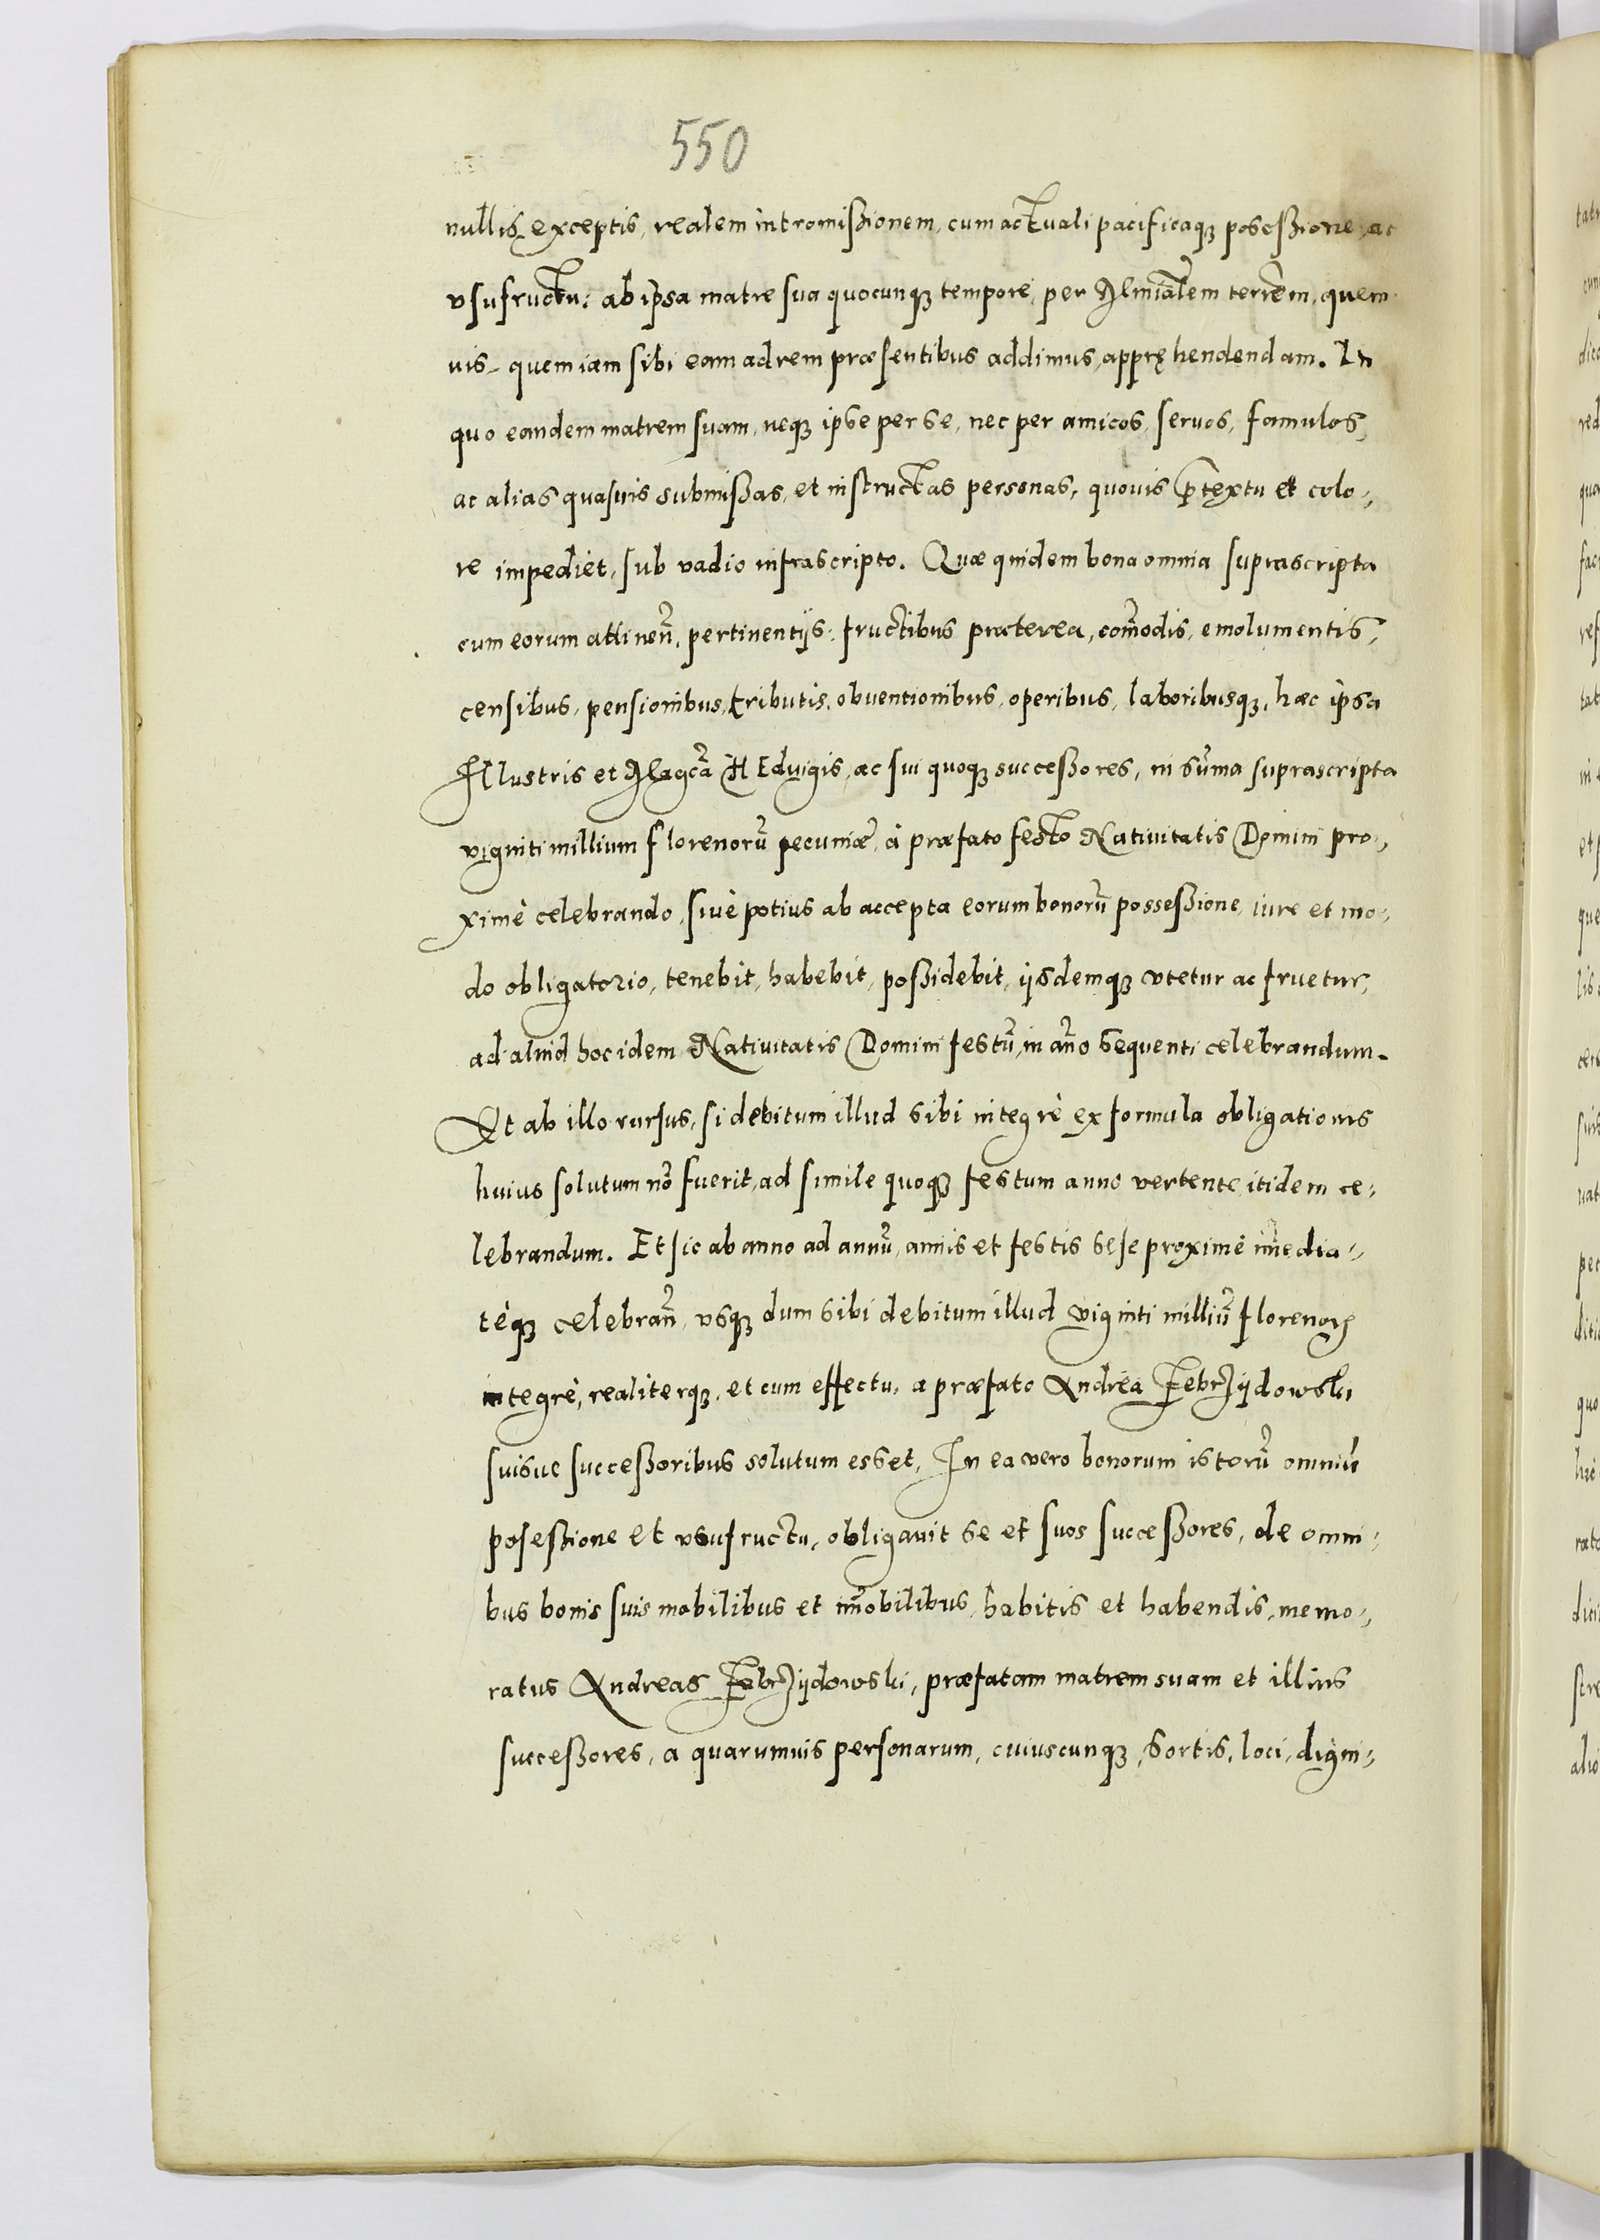 550
nullis exceptis, realem intromißionem, cum actuali pacificaqꝫ poseßione, ac
vsufructu: ab ipsa matre sua quocunqꝫ tempore, per Mīnialem terrēm, quem
uis, quem iam sibi eam ad rem præsentibus addimus, appręhendendam. In
quo eandem matrem suam, neqꝫ ipse per se, nec per amicos, seruos, famulos,
ac alias quasuis submißas, et instructas personas, quouis p̄textu et colo-,
re impediet, sub vadio infrascripto. Quæ quidem bona omnia suprascripta
cum eorum attinen̄, pertinentijs, fructibus præterea, com̄odis, emolumentis,
censibus, pensionibus, tributis, obventionibus, operibus, laboribusqꝫ, hæc ipsa
Illustris et Magcā HEduigis, ac sui quoqꝫ succeßores, in sūma suprascripta
viginti millium florenorū pecuniæ, à præfato festo Natiuitatis Domini pro-,
ximè celebrando, siuè potius ab accepta eorum bonorū posseßione, iure et mo-,
do obligatorio, tenebit, habebit, poßidebit, ijsdemqꝫ vtetur ac fruetur,
ad aliud hoc idem Natiuitatis Domini festū, in an̄o sequenti celebrandum.
Et ab illo rursus, si debitum illud sibi integrè ex formula obligationis
huius solutum nō fuerit, ad simile quoqꝫ festum anno vertente, itidem ce-,
lebrandum. Et sic ab anno ad annū, annis et festis sese proximè im̄edia-,
tèqꝫ celebran̄, vsqꝫ dum sibi debitum illud viginti milliū florenoꝝ
integrè, realiterqꝫ, et cum effectu, a præfato Andrea Zebrzijdowski
suisue succeßoribus solutum esset, In ea vero bonorum istorū omniū
poseßione et vsufructu, obligauit se et suos succeßores, de omni-,
bus bonis suis mobilibus et im̄obilibus, habitis et habendis, memo-,
ratus Andreas Zebrzijdowski, præfatam matrem suam et illius
succeßores, a quarumuis personarum, cuiuscunqꝫ, sortis, loci, digni-,